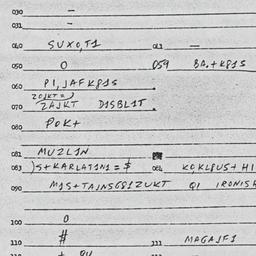 030 –
031 –
040 SUXO,T1 041 –
050 O 059 BA.+KP1S
060 P1,JAFKP1S
070 ZAJKT D1SBL1T.
080 POK+
081 MUZL1N
083 )S+KARLAT1N1=$ 084 KOKLPUS+H1
090 M1S+TAJNSGS1ZUKT Q1 IRONISK
100 O
110 # 111 MAGAJF1